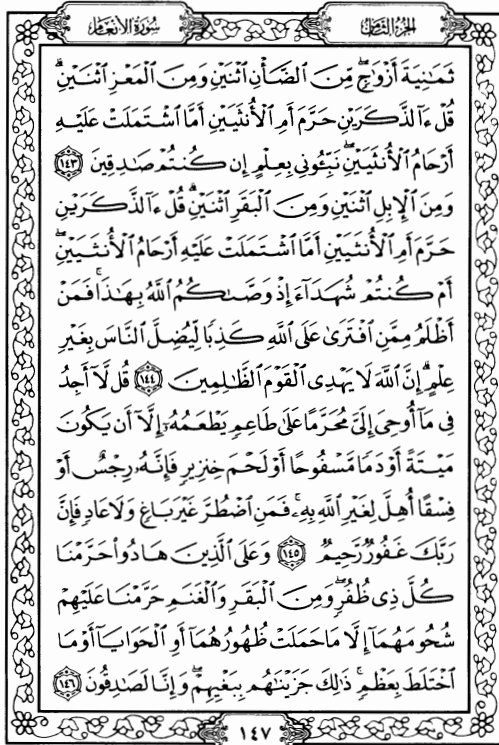 سُورَةُ الأَنْعَام
الجُزْءُ الثَّامِنُ
ثَمَٰنِيَةَ أَزْوَٰجٍ ۖ مِّنَ ٱلضَّأْنِ ٱثْنَيْنِ وَمِنَ ٱلْمَعْزِ ٱثْنَيْنِ ۗ
قُلْ ءَآلذَّكَرَيْنِ حَرَّمَ أَمِ ٱلْأُنثَيَيْنِ أَمَّا ٱشْتَمَلَتْ عَلَيْهِ
أَرْحَامُ ٱلْأُنثَيَيْنِ ۖ نَبِّـُٔونِى بِعِلْمٍ إِن كُنتُمْ صَٰدِقِينَ ١٤٣
وَمِنَ ٱلْإِبِلِ ٱثْنَيْنِ وَمِنَ ٱلْبَقَرِ ٱثْنَيْنِ ۗ قُلْ ءَآلذَّكَرَيْنِ
حَرَّمَ أَمِ ٱلْأُنثَيَيْنِ أَمَّا ٱشْتَمَلَتْ عَلَيْهِ أَرْحَامُ ٱلْأُنثَيَيْنِ ۖ
أَمْ كُنتُمْ شُهَدَآءَ إِذْ وَصَّىٰكُمُ ٱللَّهُ بِهَٰذَا ۚ فَمَنْ
أَظْلَمُ مِمَّنِ ٱفْتَرَىٰ عَلَى ٱللَّهِ كَذِبًا لِّيُضِلَّ ٱلنَّاسَ بِغَيْرِ
عِلْمٍ ۗ إِنَّ ٱللَّهَ لَا يَهْدِى ٱلْقَوْمَ ٱلظَّٰلِمِينَ ١٤٤ قُل لَّآ أَجِدُ
فِى مَآ أُوحِىَ إِلَىَّ مُحَرَّمًا عَلَىٰ طَاعِمٍ يَطْعَمُهُۥٓ إِلَّآ أَن يَكُونَ
مَيْتَةً أَوْ دَمًا مَّسْفُوحًا أَوْ لَحْمَ خِنزِيرٍ فَإِنَّهُۥ رِجْسٌ أَوْ
فِسْقًا أُهِلَّ لِغَيْرِ ٱللَّهِ بِهِۦ ۚ فَمَنِ ٱضْطُرَّ غَيْرَ بَاغٍ وَلَا عَادٍ فَإِنَّ
رَبَّكَ غَفُورٌ رَّحِيمٌ ١٤٥ وَعَلَى ٱلَّذِينَ هَادُوا۟ حَرَّمْنَا
كُلَّ ذِى ظُفُرٍ ۖ وَمِنَ ٱلْبَقَرِ وَٱلْغَنَمِ حَرَّمْنَا عَلَيْهِمْ
شُحُومَهُمَآ إِلَّا مَا حَمَلَتْ ظُهُورُهُمَآ أَوِ ٱلْحَوَايَآ أَوْ مَا
ٱخْتَلَطَ بِعَظْمٍ ۚ ذَٰلِكَ جَزَيْنَٰهُم بِبَغْيِهِمْ ۖ وَإِنَّا لَصَٰدِقُونَ ١٤٦
١٤٧